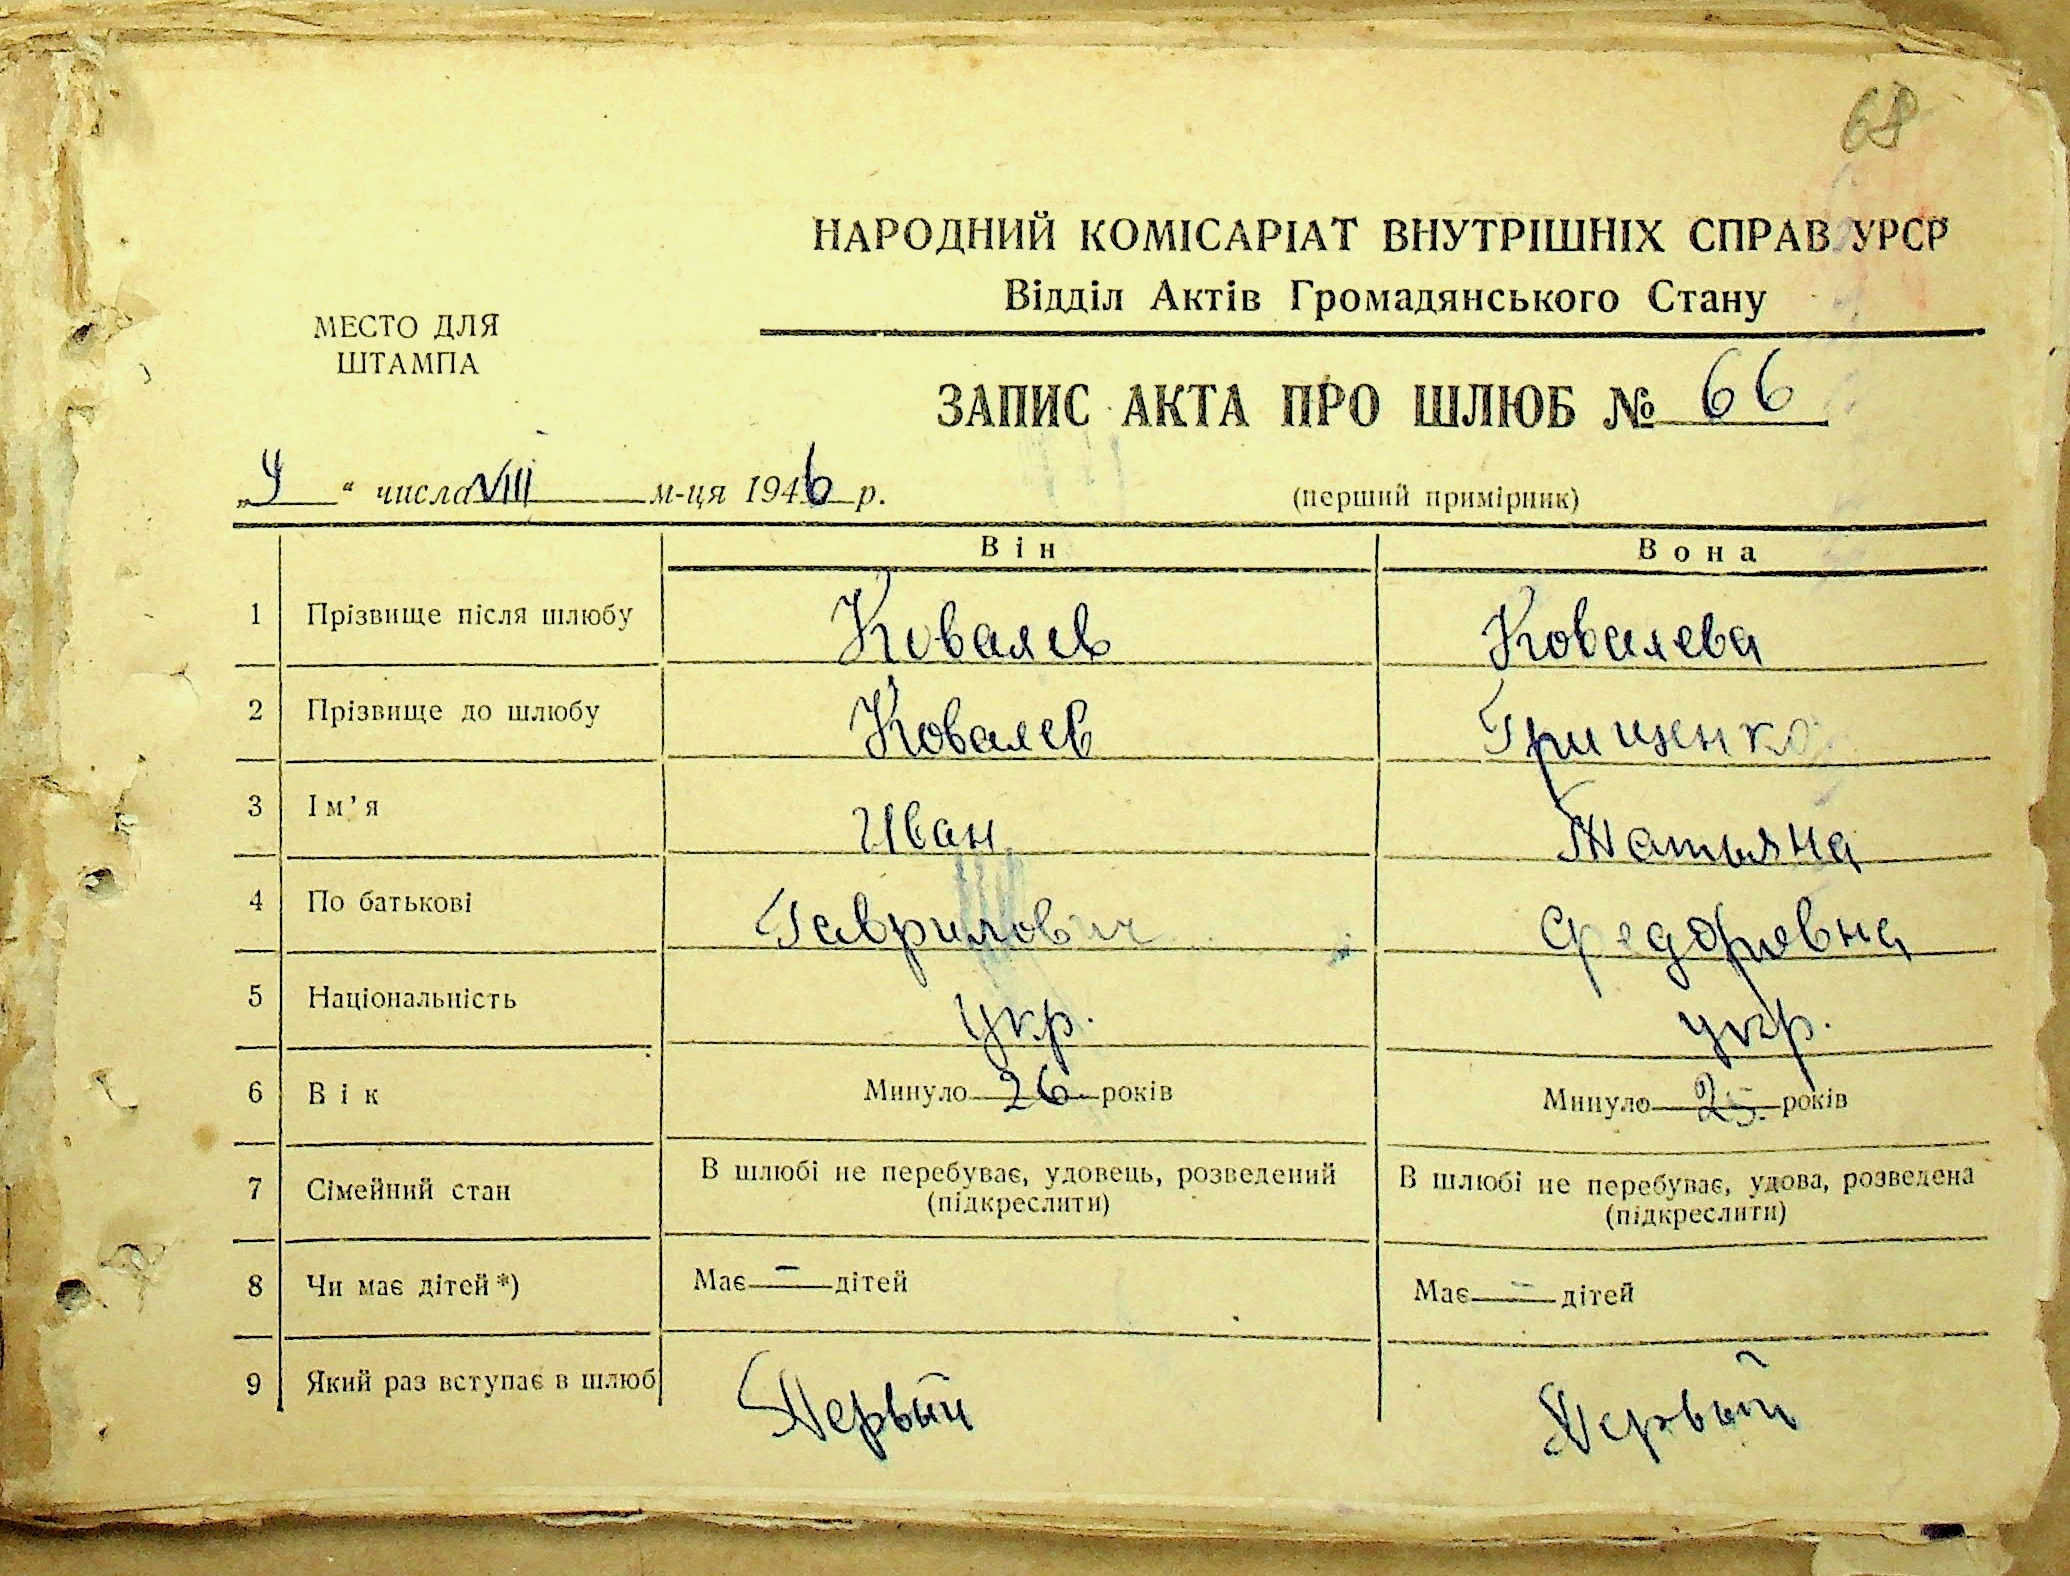 68
НАРОДНИЙ КОМІСАРІАТ ВНУТРІШНІХ СПРАВ УРСР
Відділ Актів Громадянського Стану
МЕСТО ДЛЯ
ШТАМПА
ЗАПИС АКТА ПРО ШЛЮБ № 66
„4“ числа VIII м-ця 1946 р.
(перший примірник)
Він Вона
1 Прізвище після шлюбу Ковалев Ковалева
2 Прізвище до шлюбу Ковалев Грищенко
3 Ім’я Иван Татьяна
4 По батькові Гаврилович Федоровна
5 Національність укр. укр.
6 Вік Минуло 26 років Минуло 25 років
7 Сімейний стан В шлюбі не перебуває, удовець, розведений (підкреслити) В шлюбі не перебуває, удова, розведена (підкреслити)
8 Чи має дітей*) Має — дітей Має — дітей
9 Який раз вступає в шлюб Первый Первый